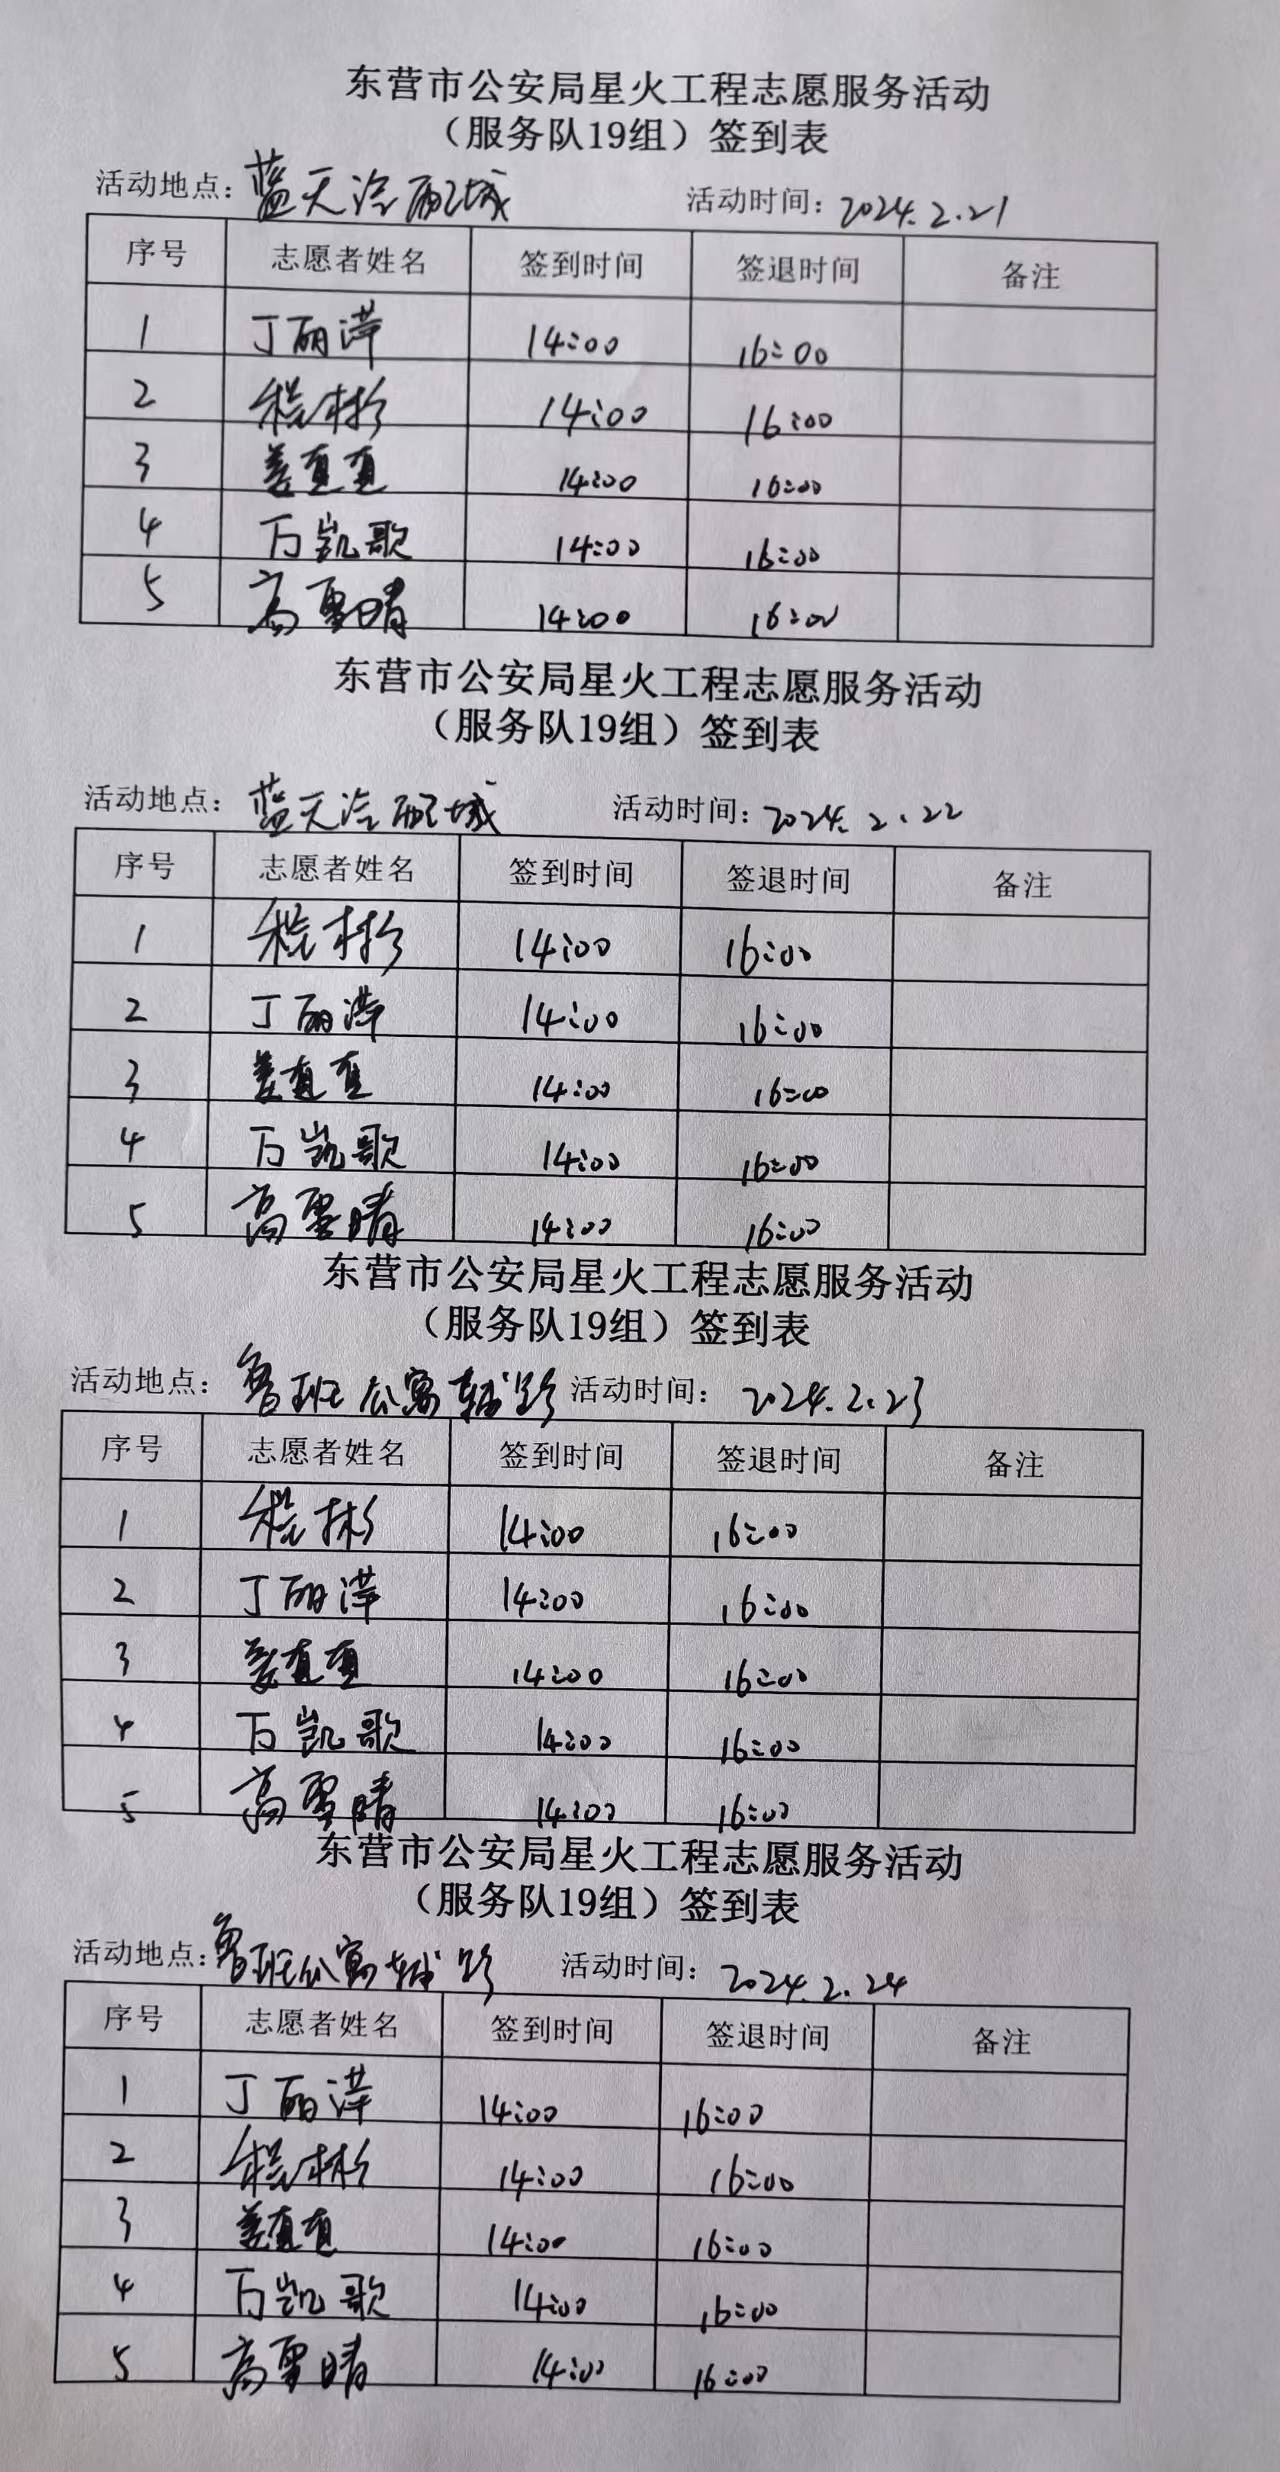 东营市公安局星火工程志愿服务活动
（服务队19组）签到表
活动地点：蓝天汽配城 活动时间：2024.2.21
序号 志愿者姓名 签到时间 签退时间 备注
1 丁丽萍 14:00 16:00
2 程彬 14:00 16:00
3 姜直直 14:00 16:00
4 万凯歌 14:00 16:00
5 高雪晴 14:00 16:00
东营市公安局星火工程志愿服务活动
（服务队19组）签到表
活动地点：蓝天汽配城 活动时间：2024.2.22
序号 志愿者姓名 签到时间 签退时间 备注
1 程彬 14:00 16:00
2 丁丽萍 14:00 16:00
3 姜直直 14:00 16:00
4 万凯歌 14:00 16:00
5 高雪晴 14:00 16:00
东营市公安局星火工程志愿服务活动
（服务队19组）签到表
活动地点：鲁班公寓辅路 活动时间：2024.2.23
序号 志愿者姓名 签到时间 签退时间 备注
1 程彬 14:00 16:00
2 丁丽萍 14:00 16:00
3 姜直直 14:00 16:00
4 万凯歌 14:00 16:00
5 高雪晴 14:00 16:00
东营市公安局星火工程志愿服务活动
（服务队19组）签到表
活动地点：鲁班公寓辅路 活动时间：2024.2.24
序号 志愿者姓名 签到时间 签退时间 备注
1 丁丽萍 14:00 16:00
2 程彬 14:00 16:00
3 姜直直 14:00 16:00
4 万凯歌 14:00 16:00
5 高雪晴 14:00 16:00